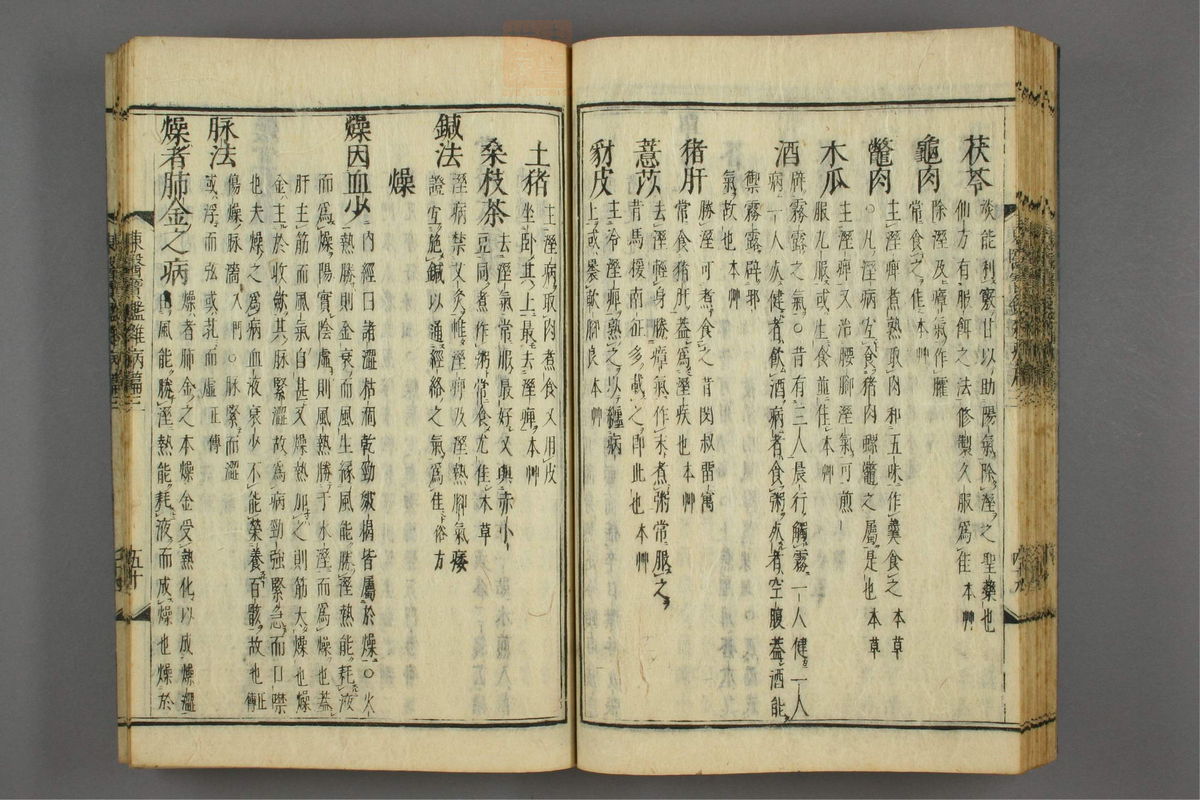 茯苓
淡能利竅甘以助陽氣除溼之聖藥也
仙方有服餌之法修製久服爲佳 本艸
龜肉
除溼及瘴氣作臛
常食之佳 本艸
鼈肉
主溼痺煮熟取肉和五味作羹食之 本草
○凡溼病冝食猪肉螺鼈之屬是也 本草
木瓜
主溼痺又治腰脚溼氣可煎
服丸服或生食並佳 本艸
酒
辟霧露之氣○昔有三人晨行觸霧一人健一人
病一人死健者飲酒病者食粥死者空腹葢酒能
禦霧露辟邪
氣故也 本艸
猪肝
勝溼可煮食之昔閔叔雷寓
常食猪肝葢爲溼疾也 本艸
薏苡
去溼輕身勝瘴氣作末煮粥常服之
昔馬援南征多載之即此也 本艸
豺皮
主冷溼痺熟之以纏病
上或褁軟脚良 本艸
土猪
主溼病取肉煮食又用皮
坐卧其上最去溼痺 本艸
桑枝茶
去溼氣常服最好又與赤小
豆同煮作粥常食尤佳 本草
鍼法
溼病禁艾灸惟溼痺及溼熱脚氣痿
證宜施鍼以通經絡之氣爲佳 俗方
燥
燥因血少
內經曰諸澀枯涸乾勁皴揭皆屬於燥○火
熱勝則金衰而風生縁風能勝溼熱能耗液
而爲燥陽實陰虛則風熱勝于水溼而爲燥也葢
肝主筋而風氣自甚又燥熱加之則筋大燥也燥
金主於收斂其脉緊澀故爲病勁強緊急而口噤
也夫燥之爲病血液衰少不能榮養百骸故也 正傳
脉法
傷燥脉濇 入門○脉緊而澀
或浮而弦或芤而虛 正傳
燥者肺金之病
燥者肺金之本燥金受熱化以成燥澀
由風能勝溼熱能耗液而成燥也燥於
東醫寶鑑雜病篇三
五十